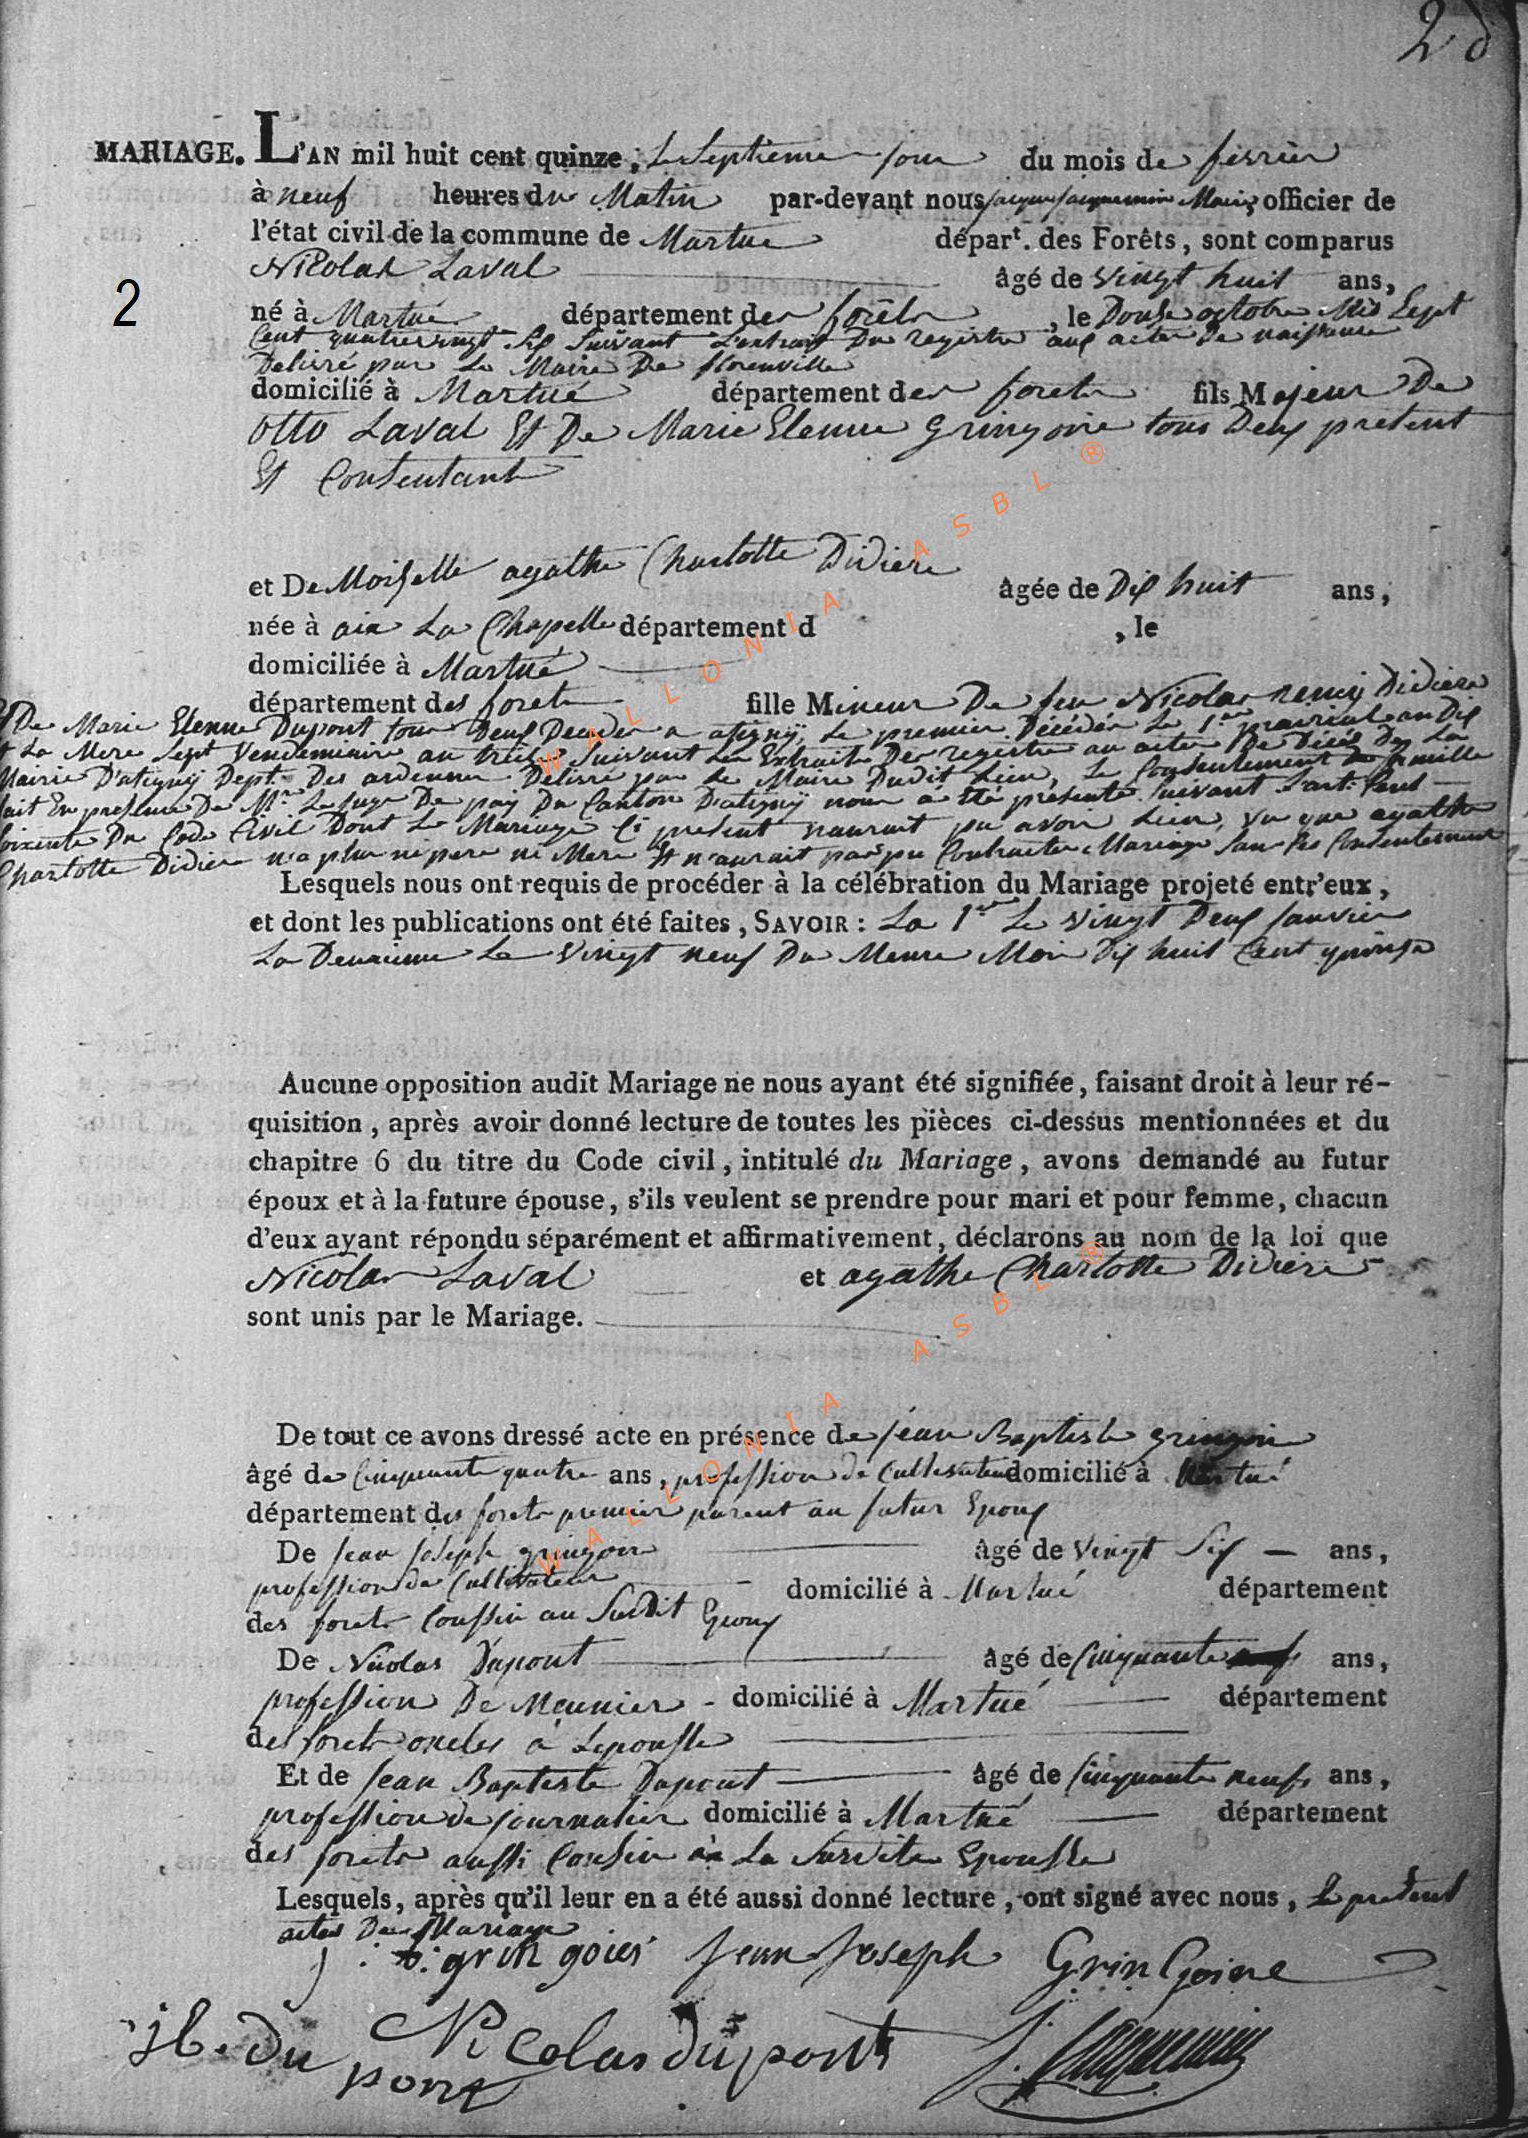 2d
MARIAGE. L'AN mil huit cent quinze, le Septieme jour du mois de fevrier
à neuf heures du Matin par-devant nous jacque jacquemin Maire officier de
l'état civil de la commune de Martué départ. des Forêts, sont comparus
Nicolas Laval âgé de vingt huit ans,
2
né à Martué département des forêts, le Douse octobre Mil Sept
Cent quatre vingt Six Suivant L'extrait Du registre aux actes De naissance
Delivré par Le Maire De florenville
domicilié à Martué département des forets fils Majeur De
Otto Laval Et De Marie Elenne Gringoire tous Deux present
Et Consentant
et DeMoiselle agathe Charlotte Didiere âgée de Dix huit ans,
née à aix La Chapelle département d , le
domiciliée à Martué
département des forets fille Mineur De feu Nicolas remij Didiere
Et De Marie Elenne Dupont tous Deux Decedes a atigny, Le premier Décédés Le 1er prairial an Dix
et La Mere Sept Vendemiaire an treize Suivant Les Extraits Des registre au actes De Décés De La
Mairie D'atignÿ Dept. Des ardennes Delivré par Le Maire Dudit Lieu, Le Consentement De famille
fait En presence De Mr. Le juge De paix Du Canton D'atignÿ nous a été présenté Suivant L'art. Cent
Soixente Du Code Civil Dont Le Mariage Ci présent n'auroit pu avoir Lieu, vu que agathe
Charlotte Didiere n'a plus ni pere ni Mere Et n'aurait pas pu Contracter Mariage Sans Ces Consentement
Lesquels nous ont requis de procéder à la célébration du Mariage projeté entr'eux,
et dont les publications ont été faites, SAVOIR : La 1ere Le vingt Deux Janvier
La Deuxieme Le Vingt neuf Du Meme Mois Dix huit Cent quinze
Aucune opposition audit Mariage ne nous ayant été signifiée, faisant droit à leur ré-
quisition, après avoir donné lecture de toutes les pièces ci-dessus mentionnées et du
chapitre 6 du titre du Code civil, intitulé du Mariage, avons demandé au futur
époux et à la future épouse, s'ils veulent se prendre pour mari et pour femme, chacun
d'eux ayant répondu séparément et affirmativement, déclarons au nom de la loi que
Nicolas Laval et agathe Charlotte Didiere
sont unis par le Mariage.
De tout ce avons dressé acte en présence de jean Baptiste gringoire
âgé de Cinquante quatre ans, profession de Cultivateur domicilié à Martué
département des forets premier parent au futur Epoux
De jean joseph gringoire âgé de Vingt Six ans,
profession de Cultivateur domicilié à Martué département
des forets Coussin au Susdit Epoux
De Nicolas Dupont âgé de Cinquante ans,
profession De Meunier domicilié à Martué département
des forets oncles à Lepousse
Et de Jean Baptiste Dupont âgé de Cinquante neuf ans,
profession de journalier domicilié à Martué département
des forets aussi Cousin à La Surdite Epousse
Lesquels, après qu'il leur en a été aussi donné lecture, ont signé avec nous, Le present
actes De Mariage
j : b : grin goier jean joseph Grin Goire
jb. du pont Nicolas dupont j. jacquemin
WALLONIA ASBL ®
WALLONIA ASBL ®